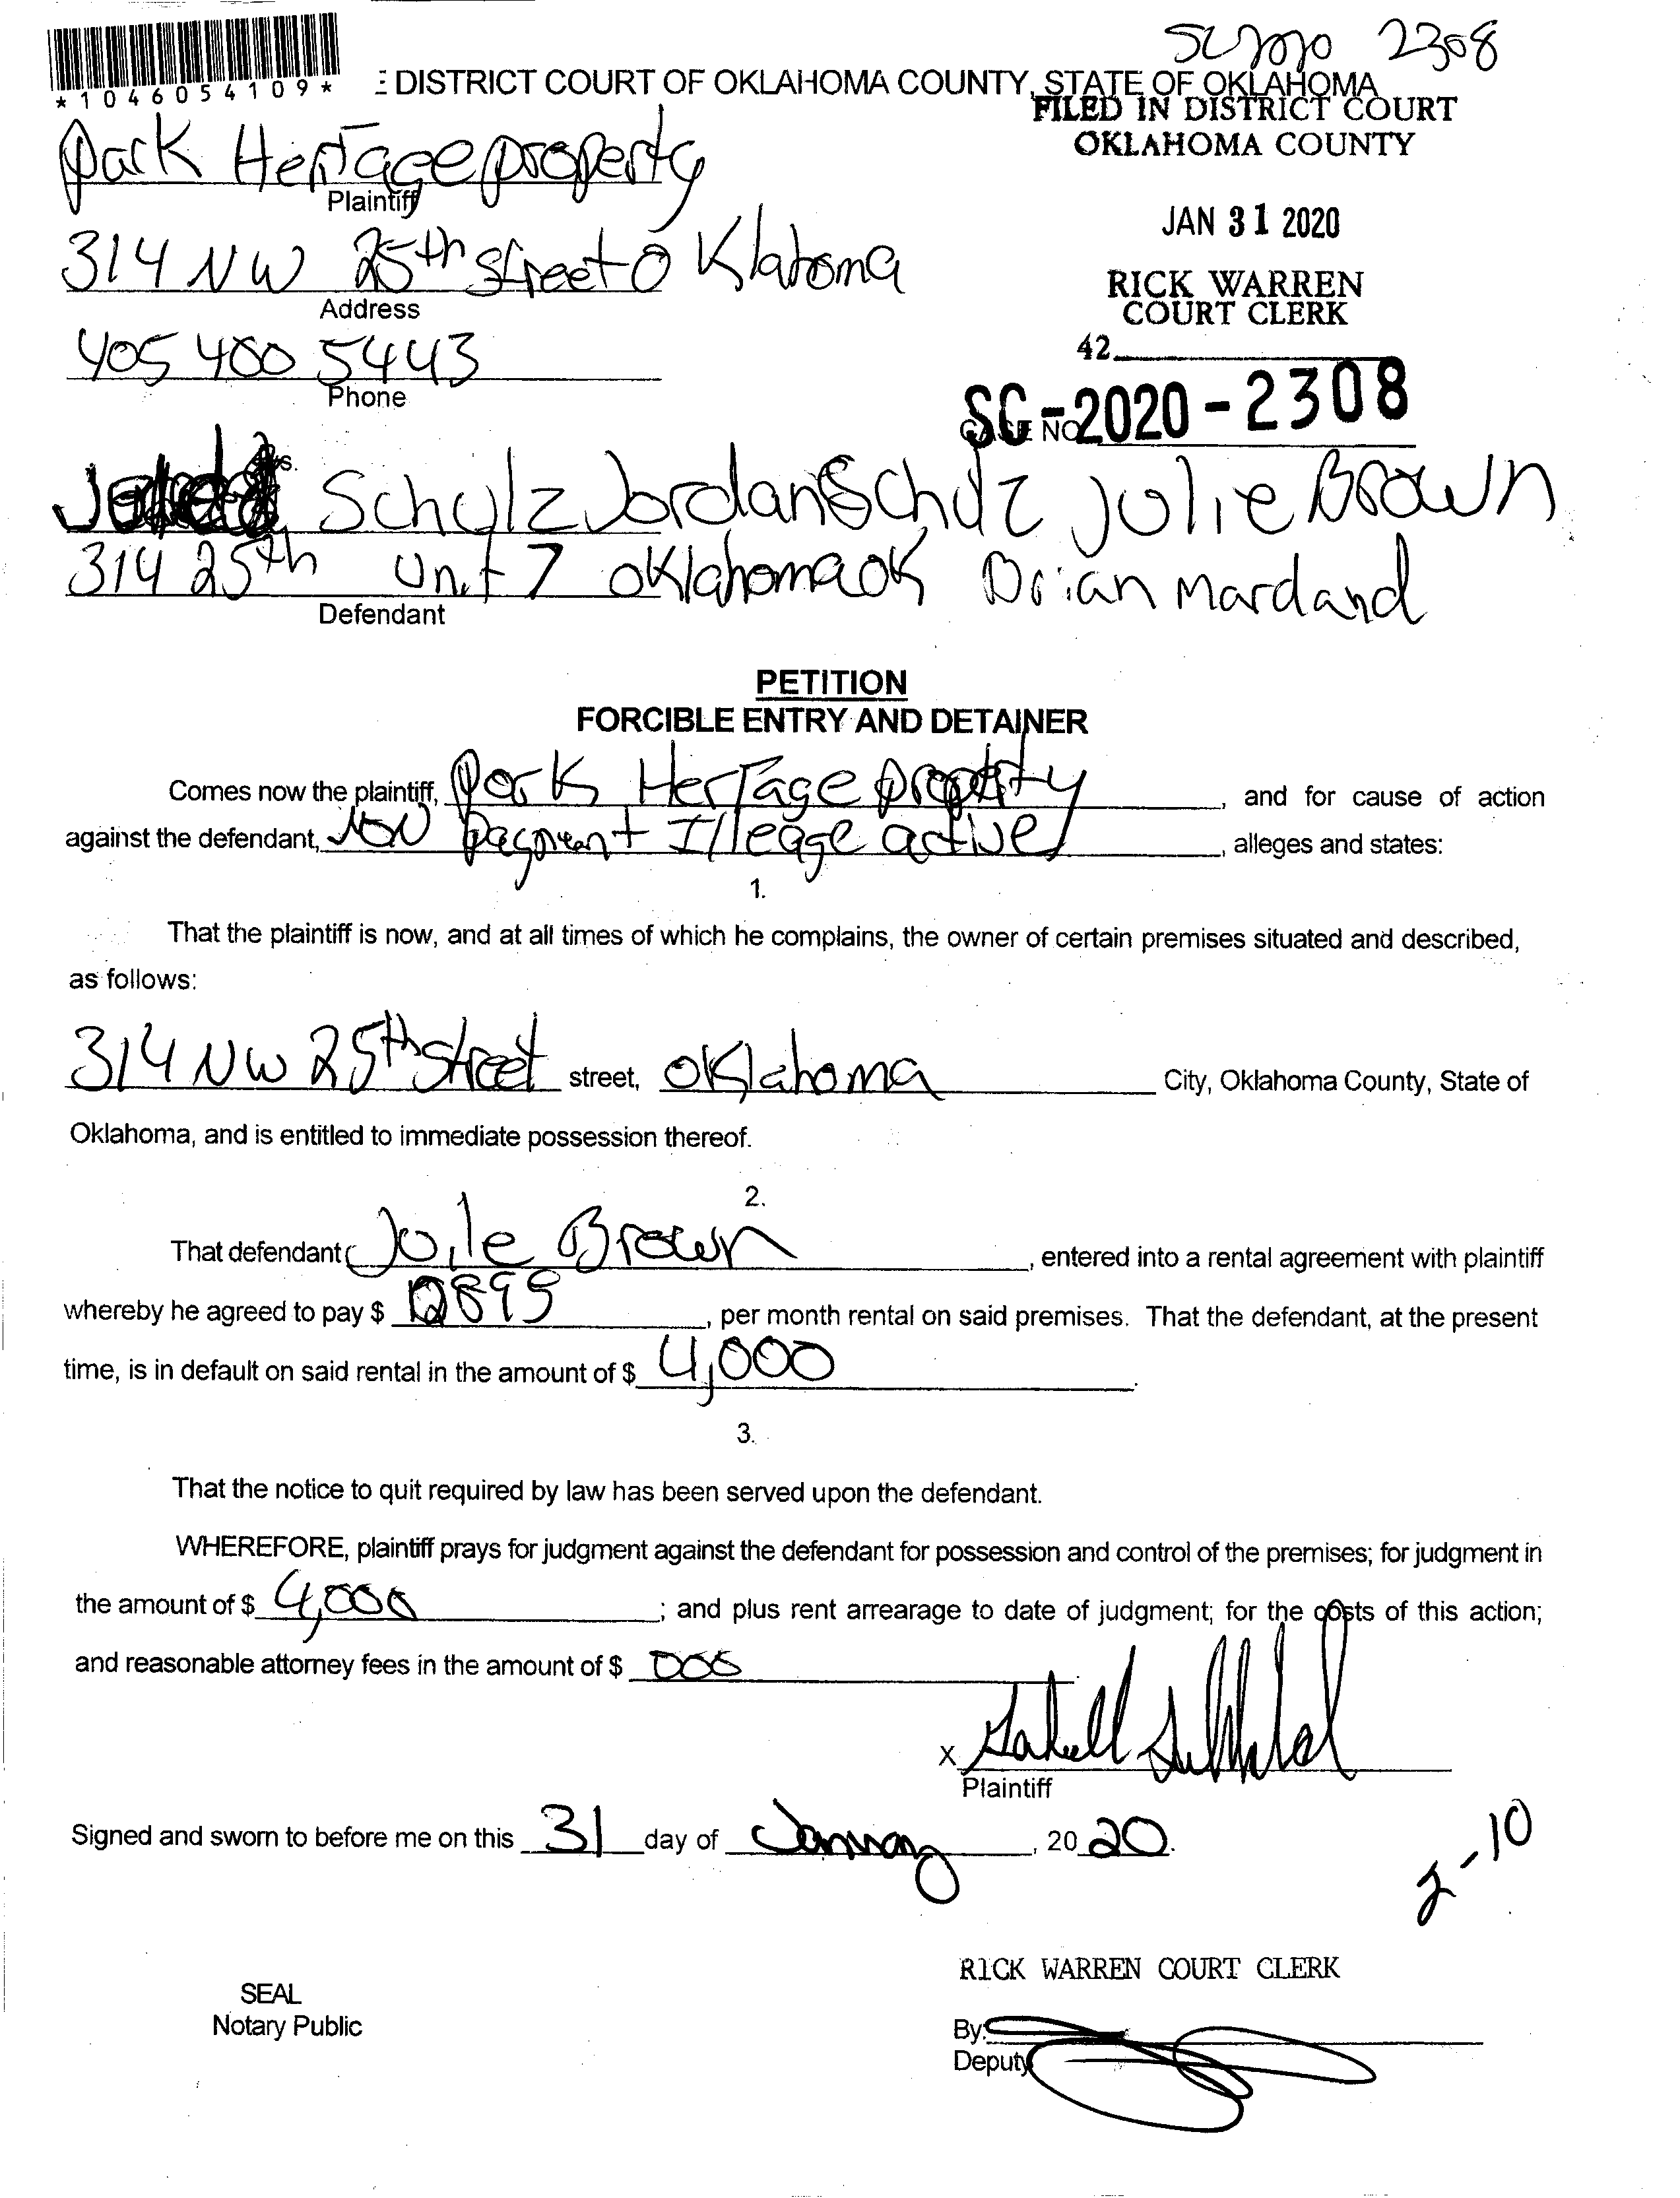 SC 2020 2308
*1046054109*
DISTRICT COURT OF OKLAHOMA COUNTY, STATE OF OKLAHOMA
FILED IN DISTRICT COURT
OKLAHOMA COUNTY
Park Heritage property
Plaintiff
JAN 31 2020
314 NW 25th street Oklahoma
Address
RICK WARREN
COURT CLERK
405 400 5443
Phone
42
SC-2020-2308
CASE NO
vs.
Schulz Jordan Schulz Julie Brown
314 25th Unit 7 Oklahoma OK Brian Mardand
Defendant
PETITION
FORCIBLE ENTRY AND DETAINER
Comes now the plaintiff, Park Hertage property, and for cause of action
against the defendant, NON payment Illeage active, alleges and states:
1.
That the plaintiff is now, and at all times of which he complains, the owner of certain premises situated and described,
as follows:
314 NW 25th street street, Oklahoma City, Oklahoma County, State of
Oklahoma, and is entitled to immediate possession thereof.
2.
That defendant Joile Brown, entered into a rental agreement with plaintiff
whereby he agreed to pay $ 895, per month rental on said premises. That the defendant, at the present
time, is in default on said rental in the amount of $ 4,000.
3.
That the notice to quit required by law has been served upon the defendant.
WHEREFORE, plaintiff prays for judgment against the defendant for possession and control of the premises; for judgment in
the amount of $ 4,000; and plus rent arrearage to date of judgment; for the costs of this action;
and reasonable attorney fees in the amount of $ 000
X
Plaintiff
Signed and sworn to before me on this 31 day of January, 2020.
2-10
RICK WARREN COURT CLERK
SEAL
Notary Public
By:
Deputy